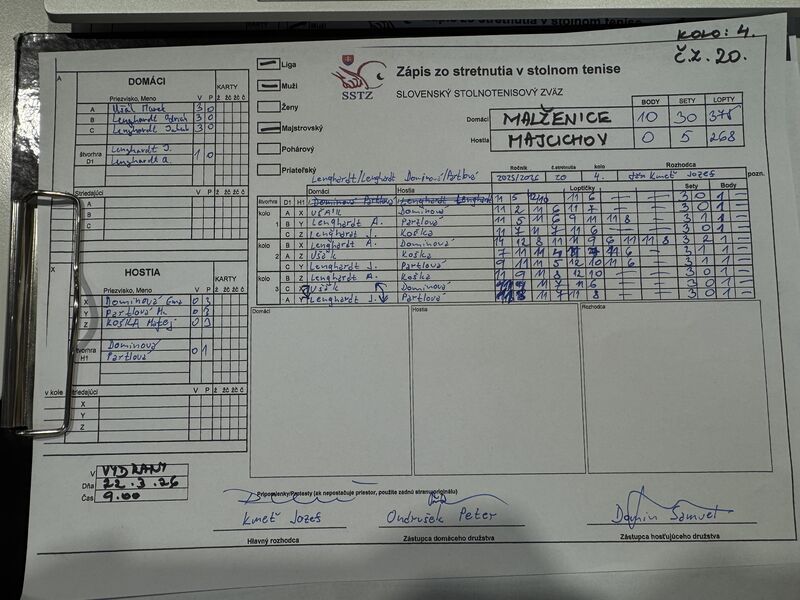 KOLO: 4.
č.z. 20.
Zápis zo stretnutia v stolnom tenise
SLOVENSKÝ STOLNOTENISOVÝ ZVÄZ
SSTZ
Liga
Muži
Ženy
Majstrovský
Pohárový
Priateľský
BODY SETY LOPTY
Domáci MALŽENICE 10 30 375
Hostia MAJCICHOV 0 5 268
Ročník č.stretnutia kolo Rozhodca
2025/2026 20 4. Kmeť Jozef pozn.
DOMÁCI
Priezvisko, Meno V P KARTY
A Ušák Marek 3 0
B Lenghardt 3 0
C Lenghardt Jakub 3 0
štvorhra D1
Lenghardt J. 1 0
Lenghardt A.
Striedajúci
A
B
C
HOSTIA
Priezvisko, Meno V P KARTY
X Dominová Ema 0 3
Y Partlová 0 3
Z KOŠKA Matej 0 3
štvorhra H1
Dominová 0 1
Partlová
v kole Striedajúci V P
X
Y
Z
Lenghardt/Lenghardt Dominová/Partlová
Domáci Hostia Loptičky Sety Body
D1 H1 11 5 12 10 11 6 3 0 1
kolo 1
A X Ušák Dominová 11 2 11 6 11 7 3 0 1
B Y Lenghardt A. Partlová 11 5 11 6 9 11 11 8 3 1 1
C Z Lenghardt J. Koška 11 7 11 7 11 6 3 0 1
kolo 2
B X Lenghardt A. Dominová 14 12 8 11 11 9 6 11 11 8 3 2 1
A Z Ušák Koška 7 11 11 11 6 3 1 1
C Y Lenghardt J. Partlová 9 11 11 5 12 10 11 6 3 1 1
kolo 3
B Z Lenghardt A. Koška 11 9 11 8 12 10 3 0 1
C X Ušák Dominová 11 7 11 6 3 0 1
A Y Lenghardt J. Partlová 11 8 11 7 11 8 3 0 1
Domáci Hostia Rozhodca
V VYDRANY
Dňa 22.3.26
Čas 9.00
Pripomienky/Protesty (ak nepostačuje priestor, použite zadnú stranu originálu)
Kmeť Jozef Ondrušek Peter Samuel
Hlavný rozhodca Zástupca domáceho družstva Zástupca hosťujúceho družstva